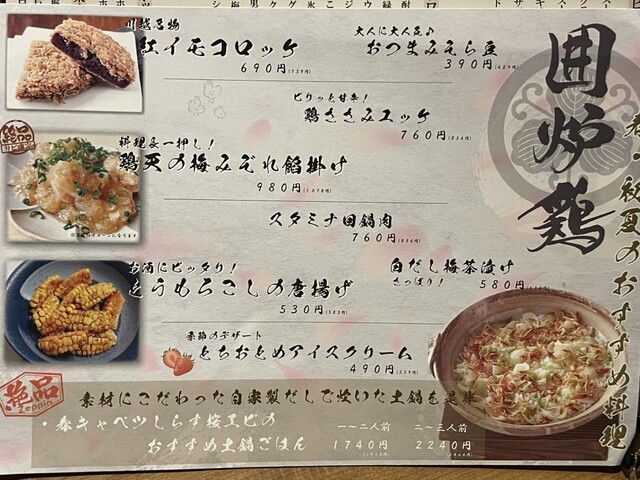 囲炉鶏
初夏のおすすめ料理
川越名物
紅イモコロッケ
690円(759円)
大人に大人気♪
おつまみそら豆
390円(429円)
ピリッと甘辛！
鶏ささみユッケ
760円(836円)
絶品
料理長一押し！
鶏天の梅みぞれ餡掛け
980円(1078円)
スタミナ回鍋肉
760円(836円)
お酒にピッタリ！
とうもろこしの唐揚げ
530円(583円)
白だし梅茶漬け
さっぱり！ 580円
季節のデザート
とちおとめアイスクリーム
490円(539円)
絶品
Zeppin
素材にこだわった自家製だしで炊いた土鍋を是非
・春キャベツしらす桜エビの
おすすめ土鍋ごはん
一～二人前
1740円
(1914円)
二～三人前
2240円
(2464円)